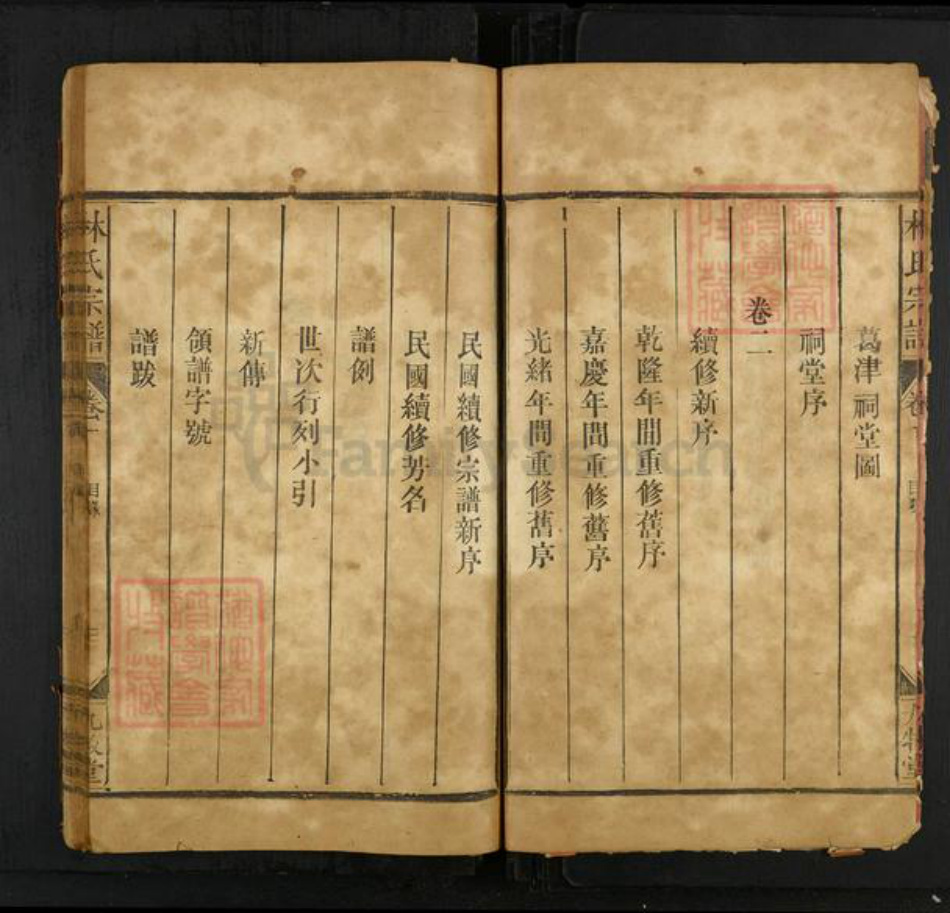 林氏宗譜
葛津祠堂圖
祠堂序
卷二
續修新序
乾隆年間重修舊序
嘉慶年間重修舊序
光緒年間重修舊序
民國續修宗譜新序
民國續修芳名
譜例
世次行列小引
新傳
領譜字號
譜跋
林氏宗譜
卷一
目錄
九牧堂
FamilySearch